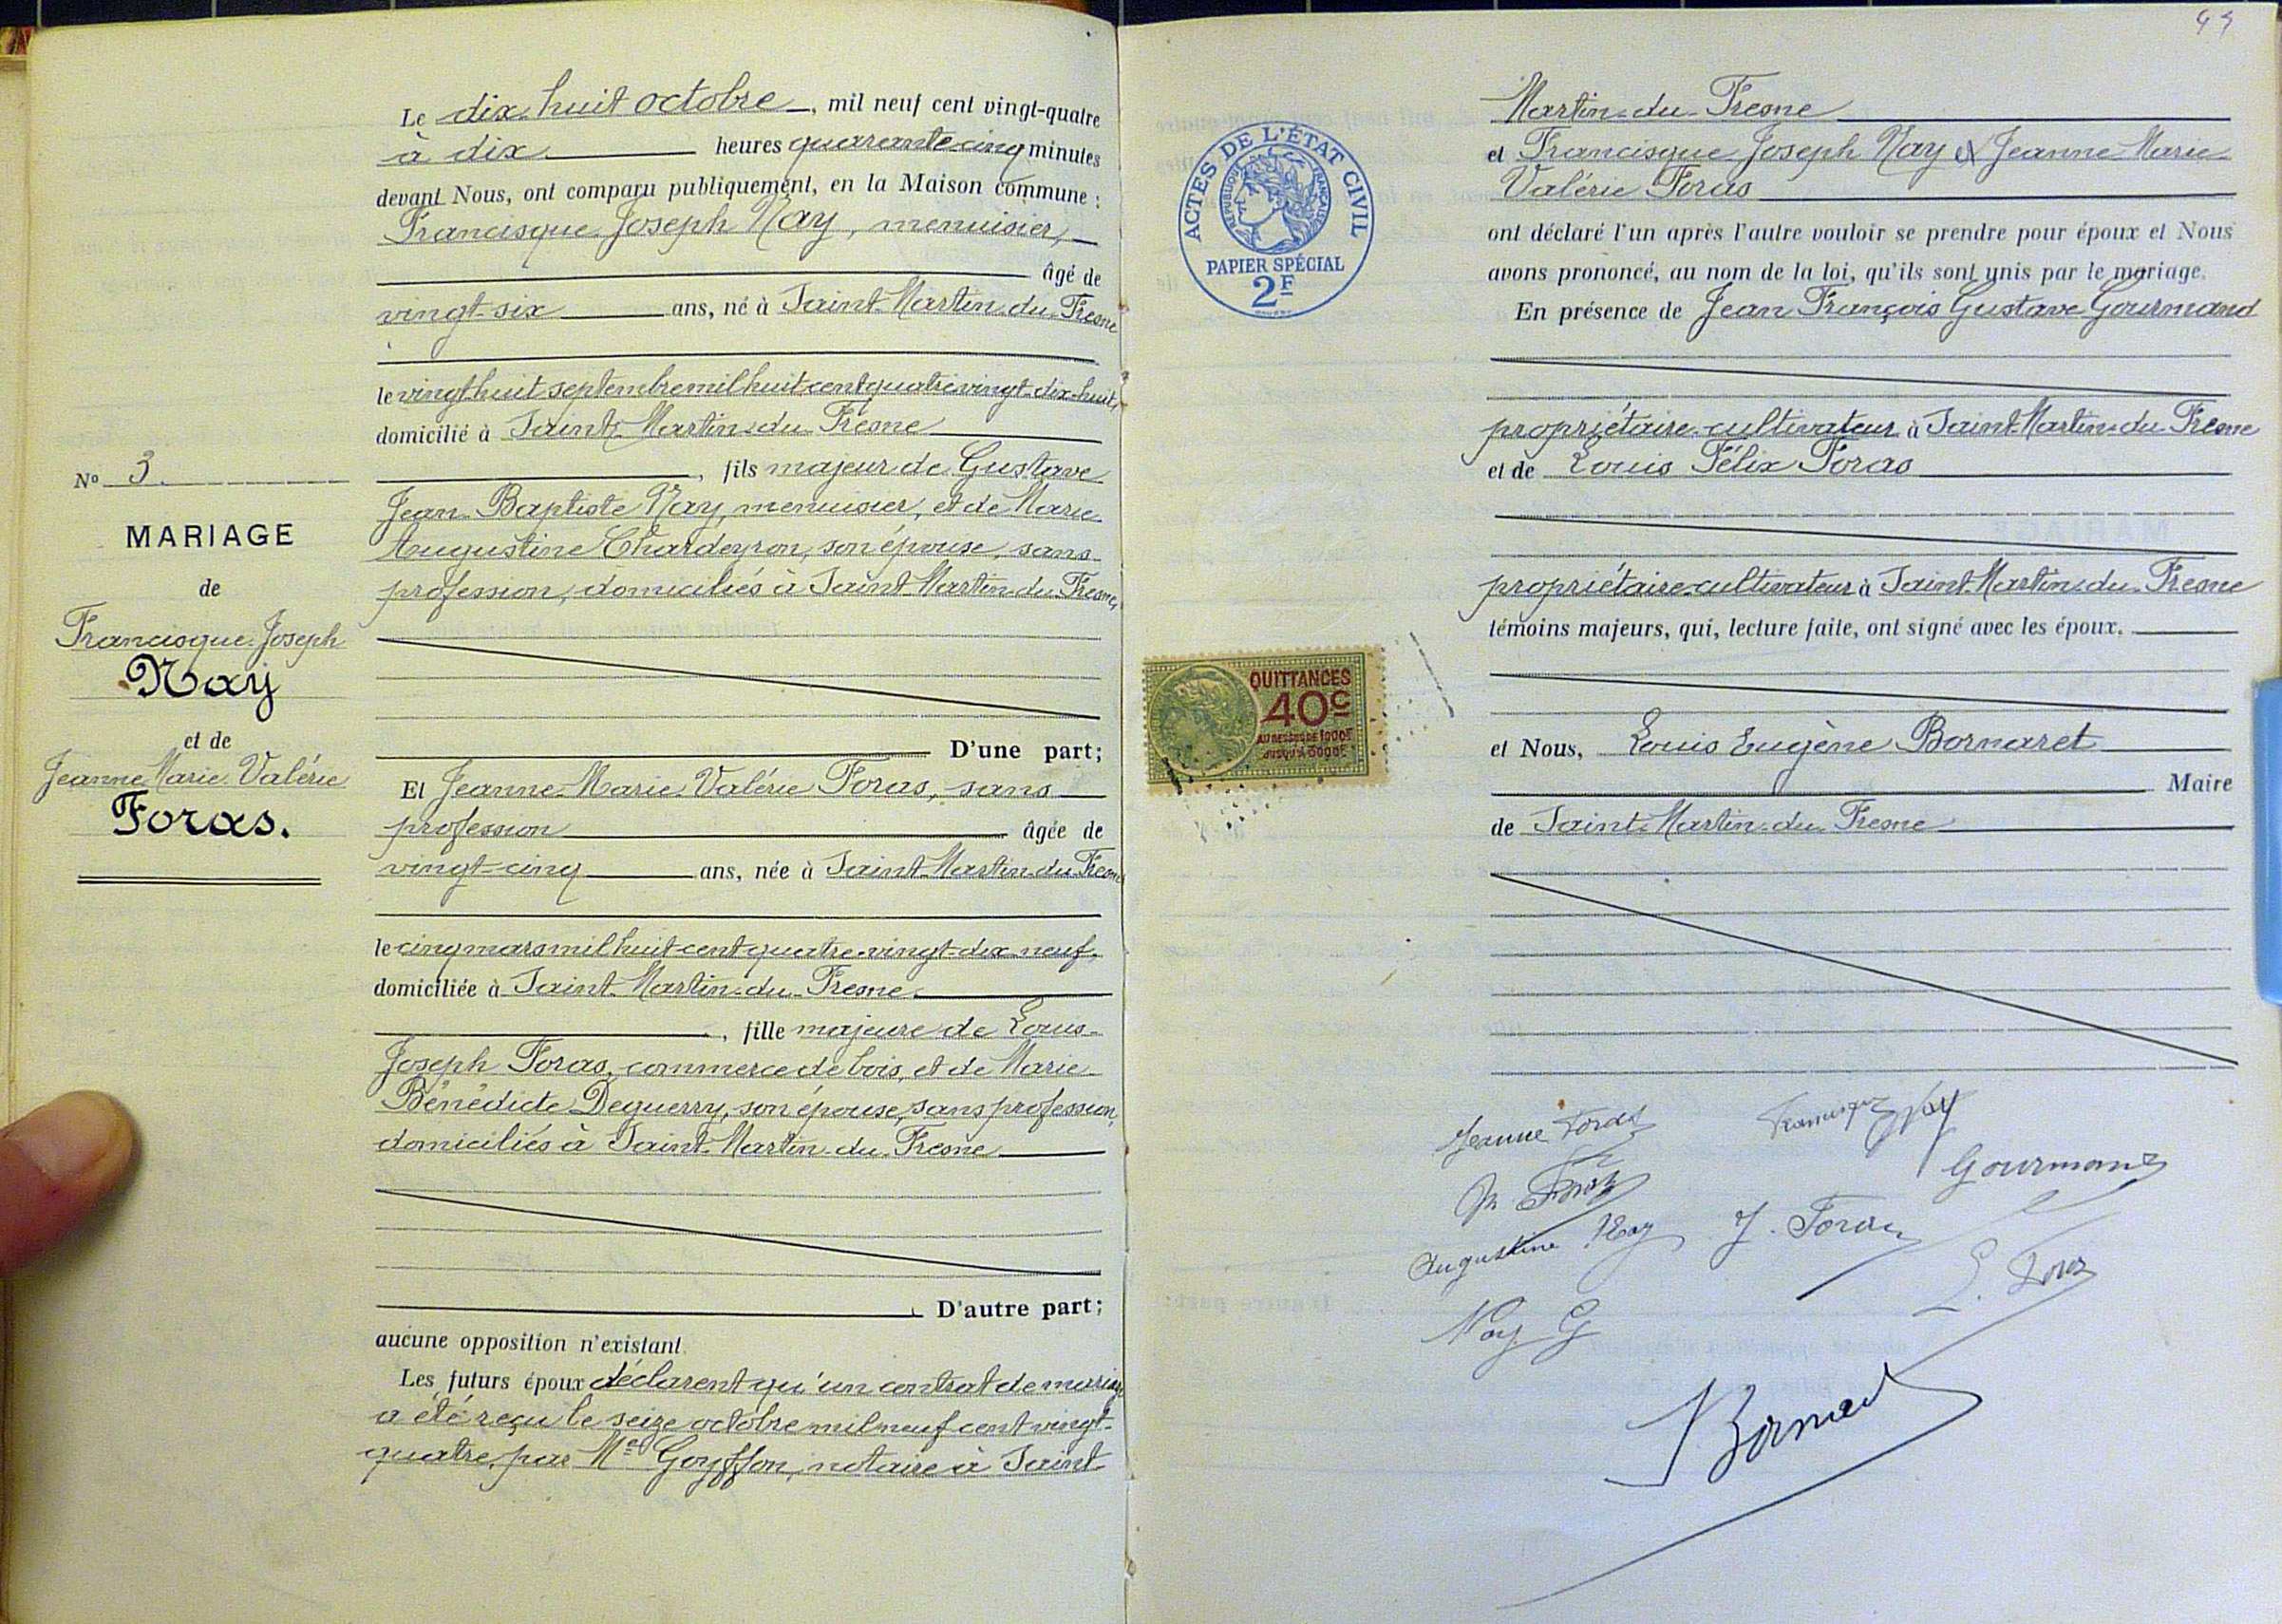 Le dix-huit octobre, mil neuf cent vingt-quatre
à dix heures quarante-cinq minutes
devant Nous, ont comparu publiquement, en la Maison commune :
Francisque Joseph Nay, menuisier,
âgé de
vingt-six ans, né à Saint-Martin-du-Fresne
le vingt-huit septembre mil huit cent quatre-vingt-dix-huit,
domicilié à Saint-Martin-du-Fresne
, fils majeur de Gustave
Jean-Baptiste Nay, menuisier, et de Marie
Augustine Chardeyron, son épouse, sans
profession, domiciliés à Saint-Martin-du-Fresne,
D'une part;
Et Jeanne-Marie-Valérie Foras, sans
profession âgée de
vingt-cinq ans, née à Saint-Martin-du-Fresne
le cinq mars mil huit cent quatre-vingt-dix-neuf,
domiciliée à Saint-Martin-du-Fresne
, fille majeure de Louis-
Joseph Foras, commerce de bois, et de Marie-
Bénédicte Deguerry, son épouse, sans profession,
domiciliés à Saint-Martin-du-Fresne
D'autre part;
aucune opposition n'existant
Les futurs époux déclarent qu'un contrat de mariage
a été reçu le seize octobre mil neuf cent vingt-
quatre, par Me Goyffon, notaire à Saint
No 3
MARIAGE
de
Francisque-Joseph
Nay
et de
Jeanne Marie Valérie
Foras.
ACTES DE L'ÉTAT CIVIL
RÉPUBLIQUE FRANÇAISE
PAPIER SPÉCIAL
2F
QUITTANCES
40c
AU DESSUS DE 1000F
JUSQU'A 3000F
Martin-du-Fresne
et Francisque Joseph Nay & Jeanne-Marie-
Valérie Foras
ont déclaré l'un après l'autre vouloir se prendre pour époux et Nous
avons prononcé, au nom de la loi, qu'ils sont unis par le mariage.
En présence de Jean François Gustave Gourmand
propriétaire-cultivateur à Saint-Martin-du-Fresne
et de Louis Félix Foras
propriétaire-cultivateur à Saint-Martin-du-Fresne
témoins majeurs, qui, lecture faite, ont signé avec les époux.
et Nous, Louis Eugène Bornaret
Maire
de Saint-Martin-du-Fresne
Jeanne Foras
Francisque Nay
Gourmand
Augustine Nay
J. Foras
Nay G
Bornaret